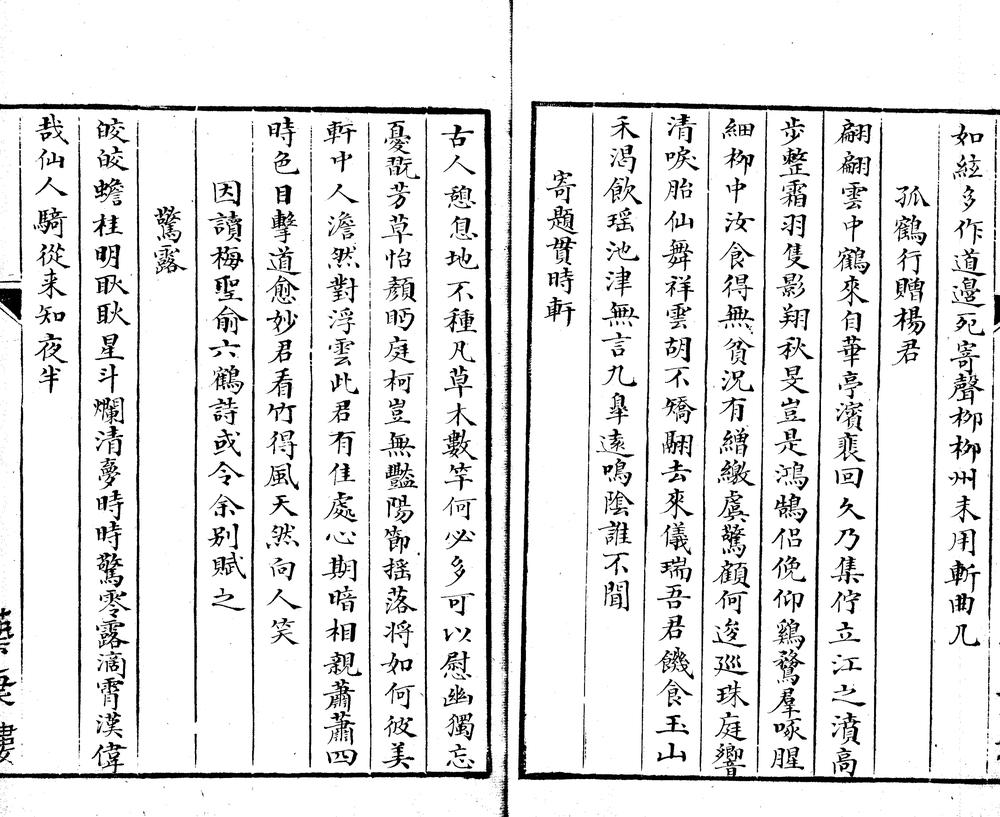 如絃多作道邊死寄聲柳柳州未用斬曲几
孤鶴行贈楊君
翩翩雲中鶴來自華亭濱裵回久乃集佇立江之濆高
步整霜羽隻影翔秋旻豈是鴻鵠侶俛仰鷄鶩羣啄腥
細柳中汝食得無貧況有繒繳虞驚顧何逡廵珠庭響
清唳胎仙舞祥雲胡不矯翮去來儀瑞吾君饑食玉山
禾渴飲瑶池津無言九臯遠鳴隂誰不聞
寄題貫時軒
古人憩息地不種凡草木數竿何必多可以慰幽獨忘
憂翫芳草怡顏眄庭柯豈無豔陽節揺落將如何彼美
軒中人澹然對浮雲此君有佳處心期暗相親蕭蕭四
時色目擊道愈妙君看竹得風天然向人笑
因讀梅聖俞六鶴詩或令余别賦之
驚露
皎皎蟾桂明耿耿星斗爛清夢時時驚零露滴霄漢偉
哉仙人騎從来知夜半